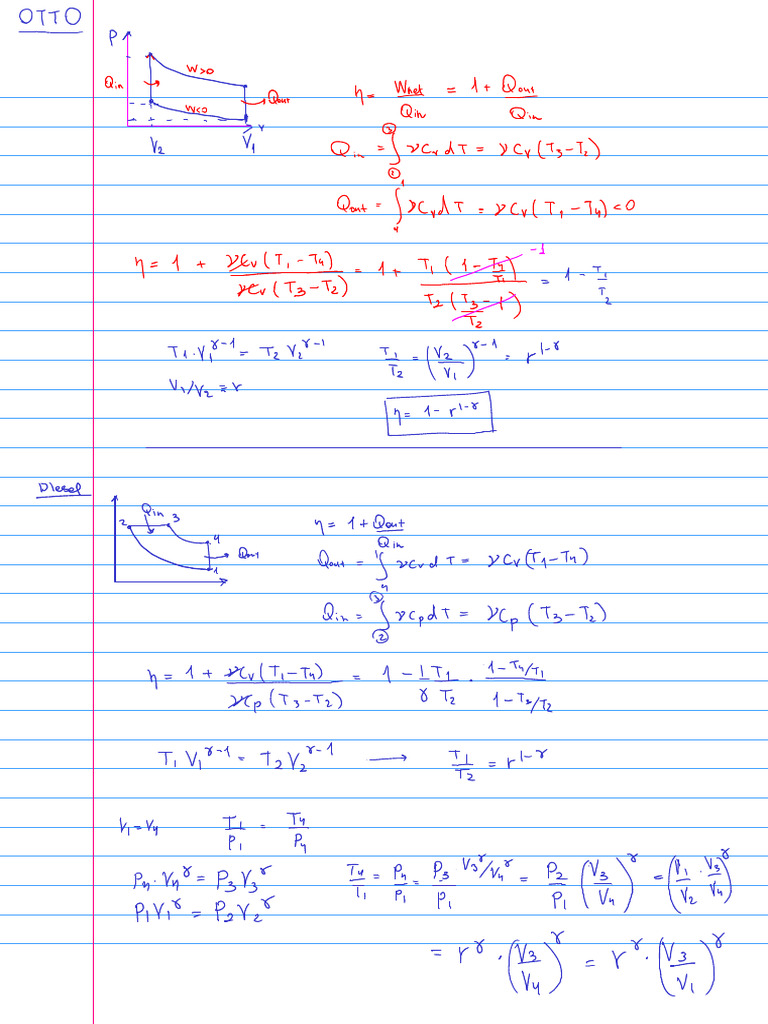 OTTO
P
Qin
W>0
W<0
Qout
V
V₂ V₁
η = Wnet/Qin = 1 + Qout/Qin
Qin = ∫②③ νCv dT = νCv (T₃ - T₂)
Qout = ∫₄¹ νCv dT = νCv (T₁ - T₄) < 0
η = 1 + νCv (T₁ - T₄)/νCv (T₃ - T₂) = 1 + T₁ (1 - T₄/T₁)/T₂ (T₃/T₂ - 1) -1 = 1 - T₁/T₂
T₁·V₁^γ-1 = T₂ V₂^γ-1 T₁/T₂ = (V₂/V₁)^γ-1 = r^1-γ
V₁/V₂ ≡ r
η = 1 - r^1-γ
Diesel
Qin
2 3
4
Qout
1
η = 1 + Qout/Qin
Qout = ∫₄¹ νCv dT = νCv (T₁ - T₄)
Qin = ∫②③ νCp dT = νCp (T₃ - T₂)
η = 1 + νCv (T₁ - T₄)/νCp (T₃ - T₂) = 1 - 1/γ T₁/T₂ · 1 - T₄/T₁/1 - T₂/T₂
T₁ V₁^γ-1 = T₂ V₂^γ-1 ⟶ T₁/T₂ = r^1-γ
V₁ = V₄ T₁/P₁ = T₄/P₄
P₄·V₄^γ = P₃ V₃^γ
P₁V₁^γ = P₂ V₂^γ
T₄/T₁ = P₄/P₁ = P₃/P₁ V₃^γ/V₄^γ = P₂/P₁ (V₃/V₄)^γ = (P₁/V₂ · V₃/V₄)^γ
= r^γ · (V₃/V₄)^γ = r^γ · (V₃/V₁)^γ